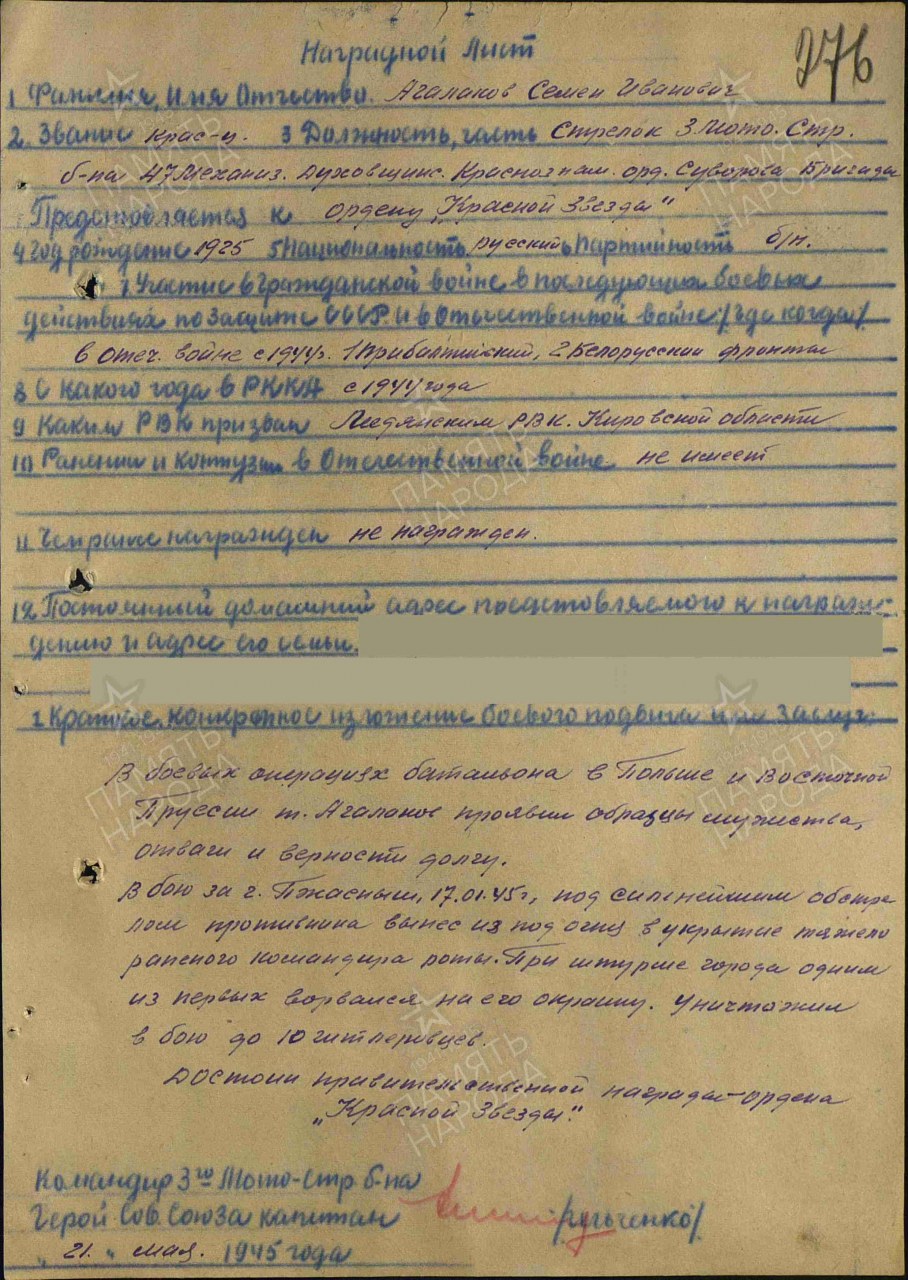 276
Наградной Лист
1 Фамилия, Имя Отчество. Агалаков Семен Иванович
2. Звание Крас-ц. 3 Должность, часть Стрелок 3 Мото. Стр.
б-на 47 Механиз. Духовщинс. Краснознам. орд. Суворова Бригады
Представляется к ордену „Красной Звезды"
4 Год рождение 1925 5 Национальность русский 6 Партийность б/п.
7 Участие в Гражданской войне в последующих боевых
действиях по защите СССР. и в Отечественной войне /где когда/
в Отеч. войне с 1944г. 1 Прибалтийский, 2 Белорусский фронты
8 С какого года в РККА с 1944 года
9 Каким РВК призван РВК. Кировской области
10 Ранении и контузии в Отечественной войне не имеет
11 Чем ранее награжден не награжден.
12 Постоянный домашний адрес представляемого к награж-
дению и адрес его семьи.
1 Краткое, конкретное изложение боевого подвига или заслуг.
В боевых операциях батальона в Польше и Восточной
Пруссии т. Агалаков проявил образцы мужества,
отваги и верности долгу.
В бою за г. Пжасныш, 17.01.45г, под сильнейшим обстре
лом противника вынес из под огня в укрытие тяжело
раненого командира роты. При штурме города одним
из первых ворвался на его окраину. Уничтожил
в бою до 10 гитлеровцев.
Достоин правительственной награды-ордена
„Красной Звезды".
Командир 3го Мото-Стр б-на
Герой Сов. Союза капитан
„ 21. „ мая. 1945 года
ПАМЯТЬ
НАРОДА